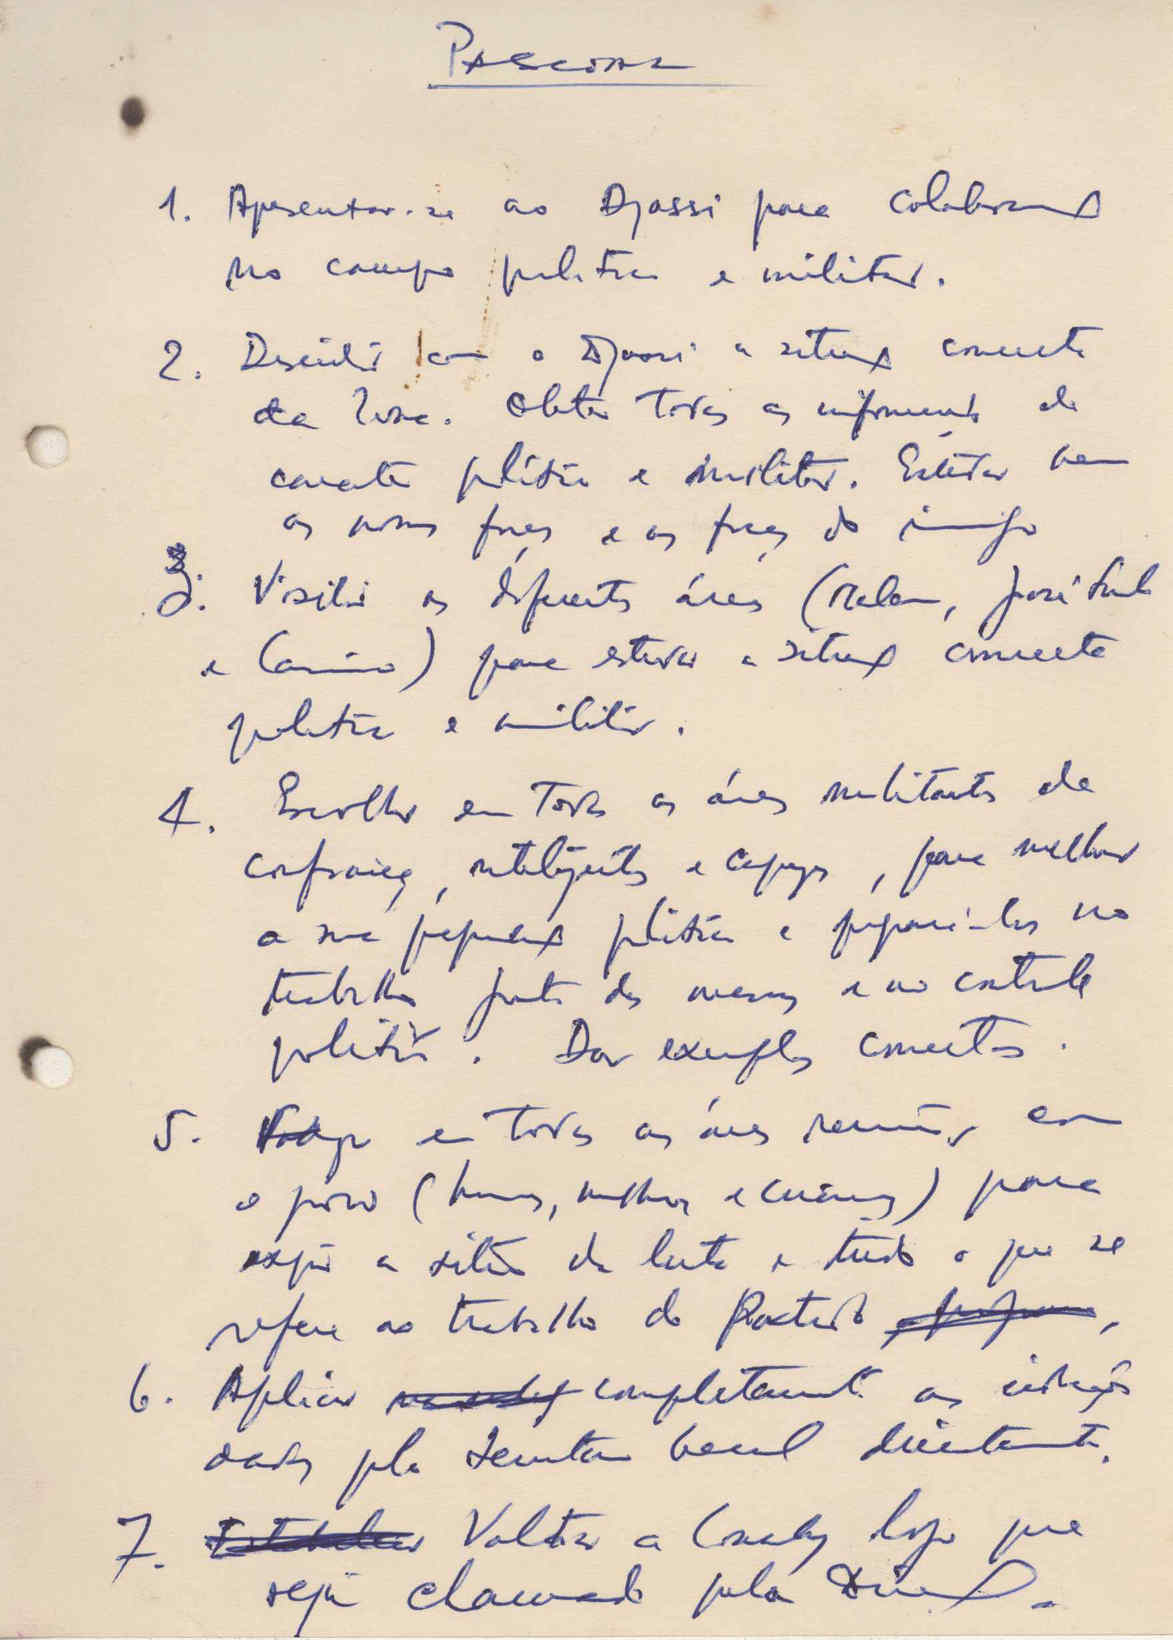 PASCOAL
1. Apresentar-se ao Djassi para colaboração
no campo político e militar.
2. Discutir com o Djassi a situação concreta
da zona. Obter todas as informações de
caracter político e militar. Estudar bem
as nossas forças e as forças do inimigo
3. Visitar as diferentes áreas
e ) para estudar a situação concreta
política e militar.
4. Escolher em todas as áreas militantes de
confiança, inteligentes e capazes, para melhorar
a sua preparação política e prepará-los no
trabalho junto das massas e no controle
político. Dar exemplos concretos.
5. em todas as áreas reuniões com
o povo (homens, mulheres e crianças) para
expôr a situação da luta e tudo o que se
refere ao trabalho do Partido,
6. Aplicar completamente as instruções
dadas pelo Secretário Geral directamente.
7. Voltar a Conakry logo que
seja chamado pela Direcção.